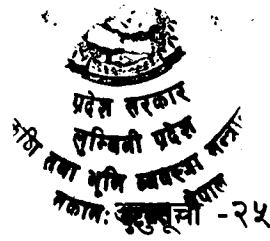 प्रदेश सरकार
लुम्बिनी प्रदेश
कृषि तथा भूमि व्यवस्था मन्त्रा
नेपाल
अनुसूची -२५